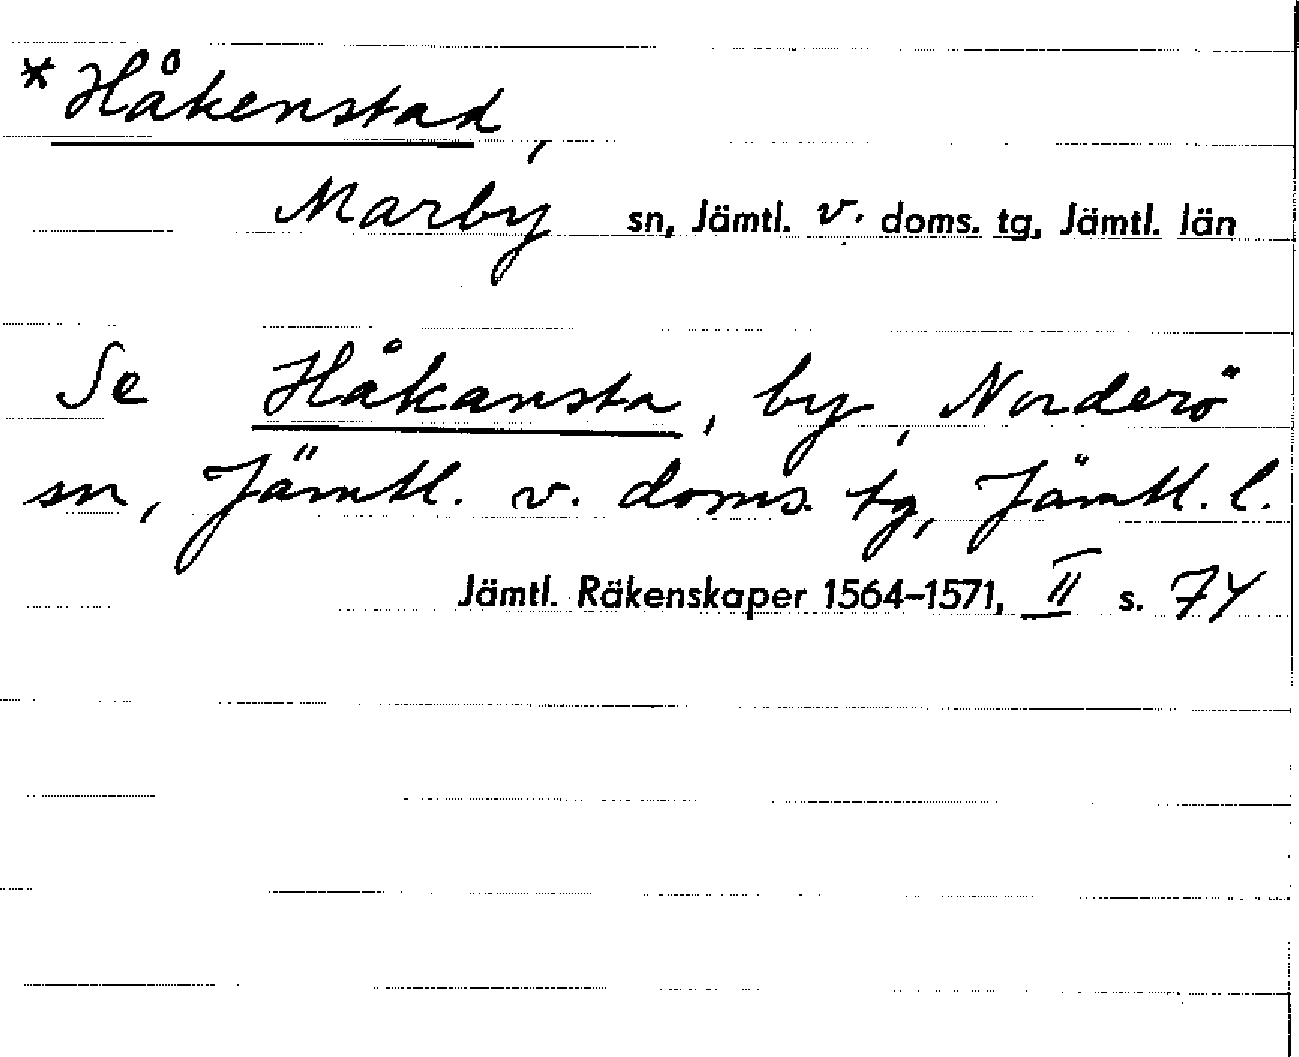 *Håkenstad,
Marby sn, Jämtl. v. doms. tg, Jämtl. län
Se Håkansta, by, Norderö
sn, Jämtl. v. doms. tg, Jämtl. l.
Jämtl. Räkenskaper 1564–1571, II s. 74